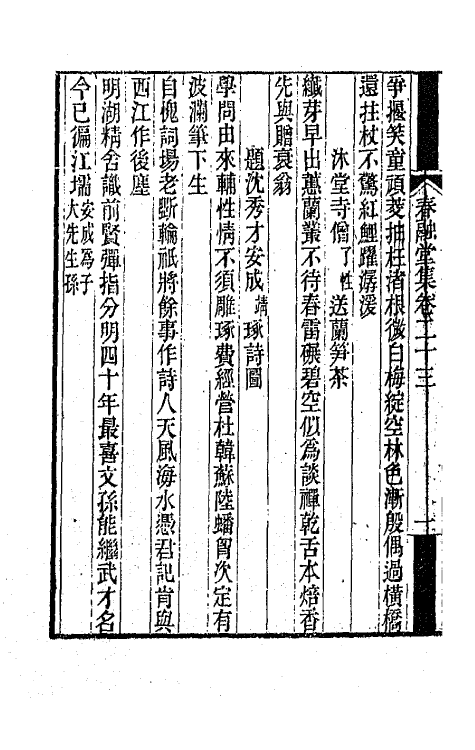 春融堂集卷二十三
爭攞笑童頑菱抽枉渚根微白梅綻空林色漸殷偶過橫橋
還拄杖不驚紅鯉躍潺湲
沐堂寺僧了性送蘭笋茶
纎芽早出蕙蘭叢不待春雷碾碧空似為談禪乾舌本焙香
先與贈衰翁
題沈秀才安成靖琢詩圖
學問由來輔性情不須雕琢費經營杜韓蘇陸蟠胷次定有
波瀾筆下生
自愧詞場老斷輪祇將餘事作詩人天風海水憑君記肯與
西江作後塵
明湖精舍識前賢彈指分明四十年最喜文孫能繼武才名
今已徧江壖安成為子大先生孫